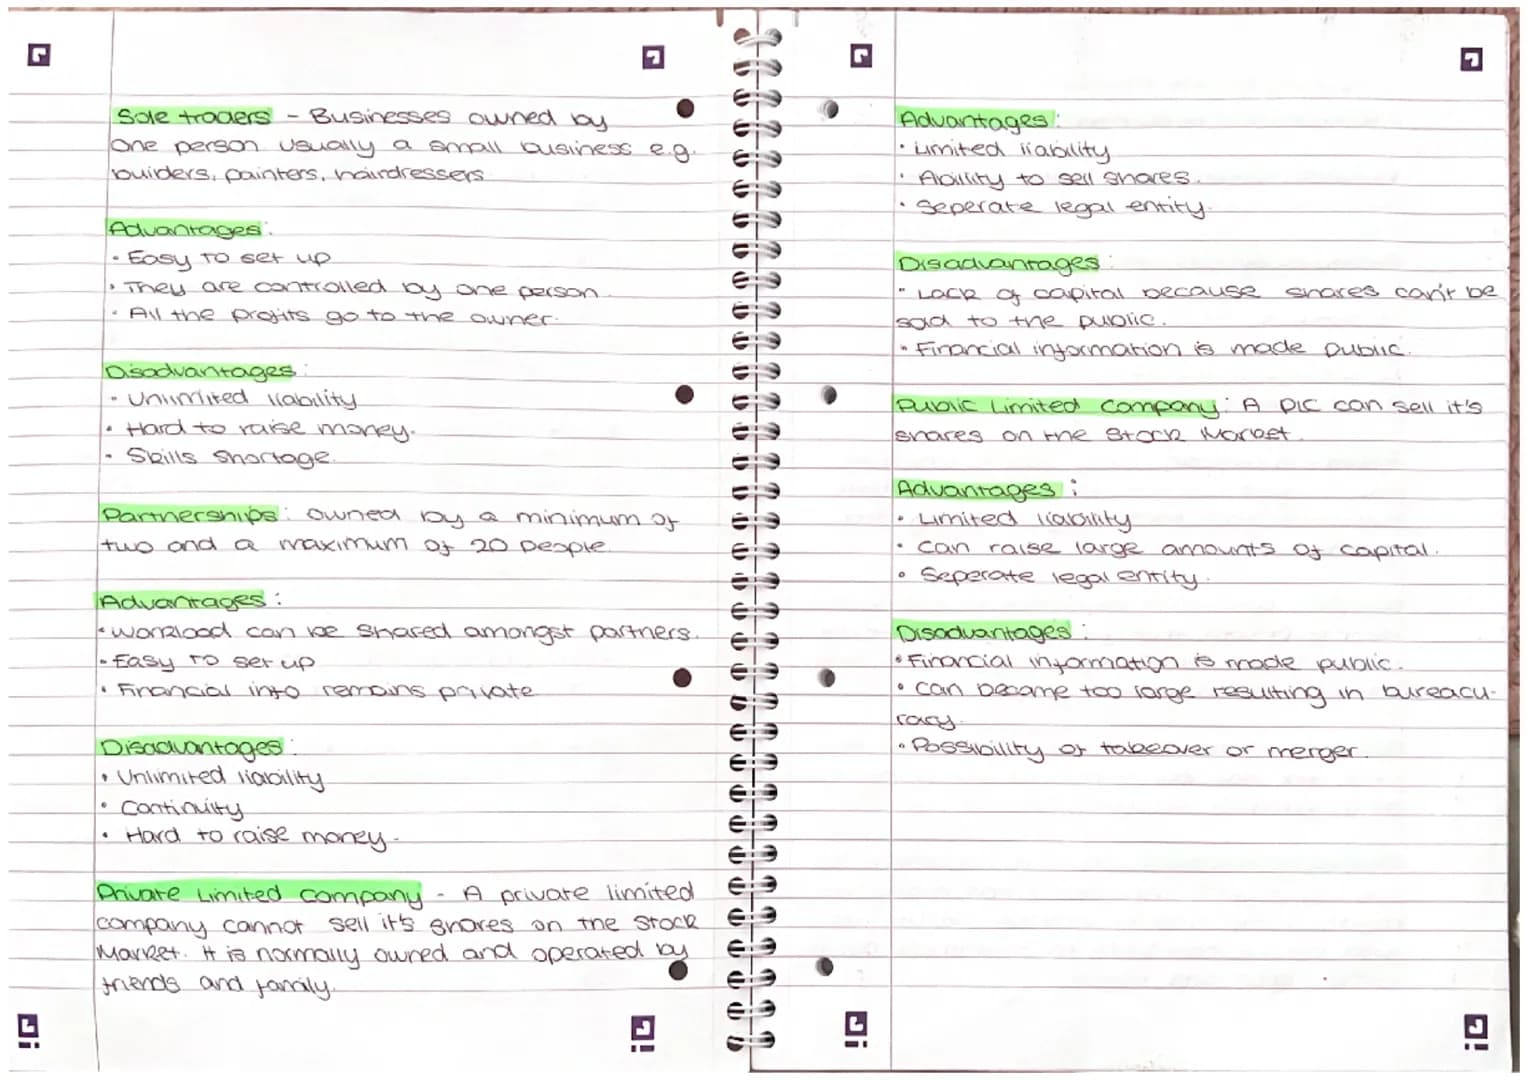 Sole traders - Businesses owned by
one person usually a small business e.g.
builders, painters, hairdressers
Advantages:
• Easy to set up
• They are controlled by one person.
• All the profits go to the owner.
Disadvantages:
• Unlimited liability
• Hard to raise money.
• Skills shortage.
Partnerships: owned by a minimum of
two and a maximum of 20 people.
Advantages:
• Workload can be shared amongst partners.
• Easy to set up
• Financial info remains private
Disadvantages:
• Unlimited liability
• Continuity
• Hard to raise money.
Private Limited Company - A private limited
company cannot sell it's shares on the Stock
Market. It is normally owned and operated by
friends and family.
Advantages:
• Limited liability
• Ability to sell shares.
• Seperate legal entity.
Disadvantages:
• Lack of capital because shares can't be
sold to the public.
• Financial information is made public.
Public Limited Company: A plc can sell it's
shares on the Stock Market.
Advantages:
• Limited liability
• Can raise large amounts of capital.
• Seperate legal entity.
Disadvantages:
• Financial information is made public.
• Can become too large resulting in bureacu-
racy.
• Possibility of takeover or merger.